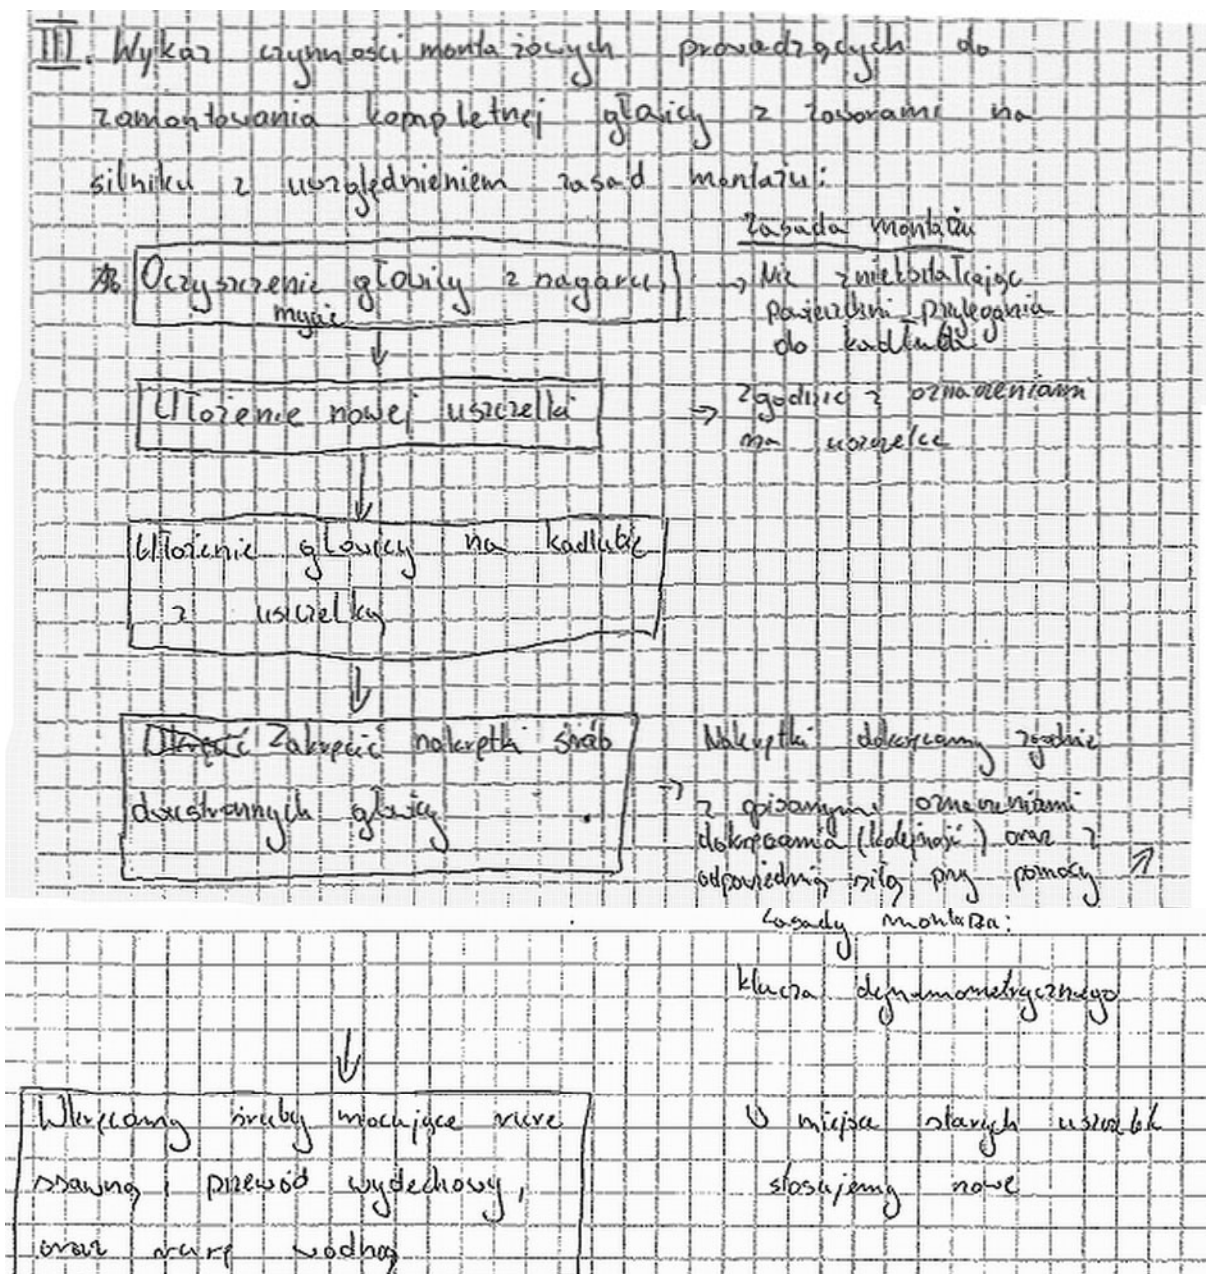 III. Wykaz czynności montażowych prowadzących do
zamontowania kompletnej głowicy z zaworami na
silniku z uwzględnieniem zasad montażu:
Zasada montażu
Oczyszczenie głowicy z nagaru,
myać
→ Nie zniekształcając
powierzchni przylegania
do kadłuba
↓
Ułożenie nowej uszczelki
→ Zgodnie z oznaczeniami
na uszczelce
↓
Ułożenie głowicy na kadłubie
z uszczelką
↓
Zakręcić nakrętki śrub
dwustronnych głowicy
→ Nakrętki dokręcamy zgodnie
z opisanymi oznaczeniami
dokręcania (kolejność) oraz z
odpowiednią siłą przy pomocy
Zasady montaża:
klucza dynamometrycznego
↓
Wkręcamy śruby mocujące rure
ssawną, przewód wydechowy,
oraz rurę wodną
W miejsce starych uszczelek
stosujemy nowe